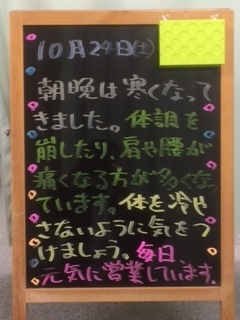 10月24日(土)
朝晩は寒くなって
きました。体調を
崩したり、肩や腰が
痛くなる方が多くなっ
ています。体を冷や
さないように気をつ
けましょう。毎日
元気に営業しています。